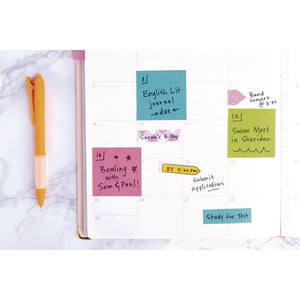 3
English Lit
journal
→due←
Band
concert
@ 7:30
12
Swim Meet
in Sheridan
Sarah's B-Day
16
Bowling
with
Sam & Paul!
BY 5:00 PM
Submit
application
Study for Test